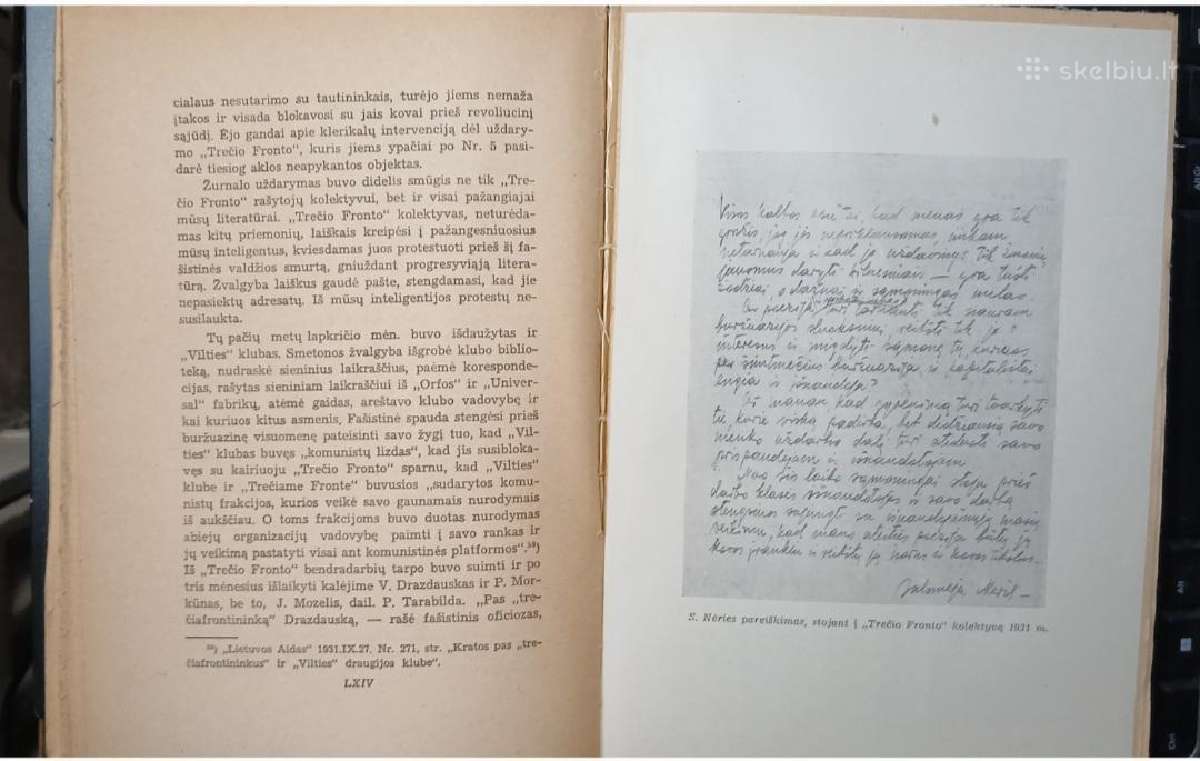 cialaus nesutarimo su tautininkais, turėjo jiems nemaža
įtakos ir visada blokavosi su jais kovai prieš revoliucinį
sąjūdį. Ėjo gandai apie klerikalų intervenciją dėl uždary-
mo „Trečio Fronto“, kuris jiems ypačiai po Nr. 5 pasi-
darė tiesiog aklos neapykantos objektas.
Žurnalo uždarymas buvo didelis smūgis ne tik „Tre-
čio Fronto“ rašytojų kolektyvui, bet ir visai pažangiajai
mūsų literatūrai. „Trečio Fronto“ kolektyvas, neturėda-
mas kitų priemonių, laiškais kreipėsi į pažangesniuosius
mūsų inteligentus, kviesdamas juos protestuoti prieš šį fa-
šistinės valdžios smurtą, gniuždant progresyviąją litera-
tūrą. Žvalgyba laiškus gaudė pašte, stengdamasi, kad jie
nepasiektų adresatų. Iš mūsų inteligentijos protestų ne-
susilaukta.
Tų pačių metų lapkričio mėn. buvo išdaužytas ir
„Vilties“ klubas. Smetonos žvalgyba išgrobė klubo biblio-
teką, nudraskė sieninius laikraščius, paėmė koresponde-
cijas, rašytas sieniniam laikraščiui iš „Orfos“ ir „Univer-
sal“ fabrikų, atėmė gaidas, areštavo klubo vadovybę ir
kai kuriuos kitus asmenis, Fašistinė spauda stengėsi prieš
buržuazinę visuomenę pateisinti savo žygį tuo, kad „Vil-
ties“ klubas buvęs „komunistų lizdas“, kad jis susibloka-
vęs su kairiuoju „Trečio Fronto“ sparnu, kad „Vilties“
klube ir „Trečiame Fronte“ buvusios „sudarytos komu-
nistų frakcijos, kurios veikė savo gaunamais nurodymais
iš aukščiau. O toms frakcijoms buvo duotas nurodymas
abiejų organizacijų vadovybę paimti į savo rankas ir
jų veikimą pastatyti visai ant komunistinės platformos“.³⁹)
Iš „Trečio Fronto“ bendradarbių tarpo buvo suimti ir po
tris mėnesius išlaikyti kalėjime V. Drazdauskas ir P. Mor-
kūnas, be to, J. Mozelis, dail. P. Tarabilda. „Pas „tre-
čiafrontininką“ Drazdauską, — rašė fašistinis oficiozas,
³⁹) „Lietuvos Aidas“ 1931.IX.27, Nr. 271, str. „Kratos pas „tre-
čiafrontininkus“ ir „Vilties“ draugijos klube“.
LXIV
skelbiu.lt
kad menas yra tik
ir kad jo uždavinys tik žmonių
— yra tušti
žodžiai
buržuazijos
interesus ir
per šimtmečius buržuazija ir kapitalistai
engia ir išnaudoja?
kad gyvenimą turi tvarkyti
tie, kurie viską padirba, bet didžiausią savo
menko uždarbio dalį turi atiduoti savo
ir išnaudotojam.
Nuo šio laiko sąmoningai stoju prieš
darbo klasės išnaudotojus ir savo darbą
stengsiuos sujungti su išnaudojamųjų masių
veikimu, kad mano ateities poezija būtų jų
kovos įrankiu
Salomėja Neris —
S. Nėries pareiškimas, stojant į „Trečio Fronto“ kolektyvą 1931 m.